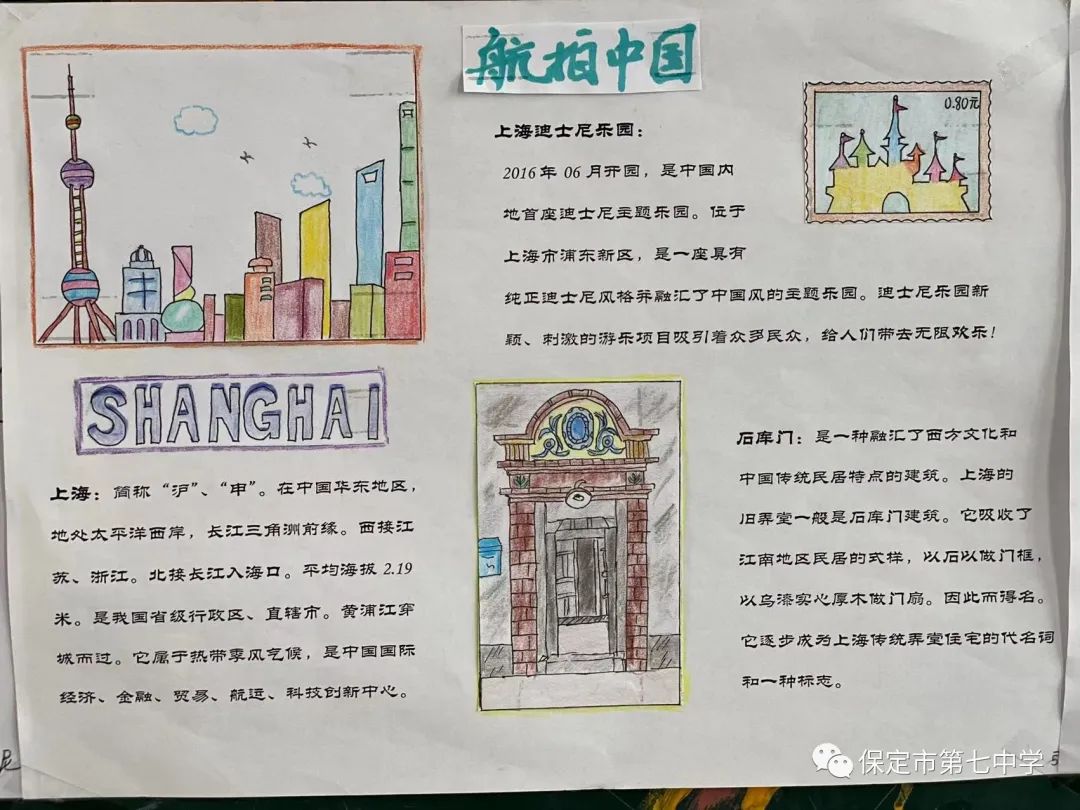 航拍中国
0.80元
上海迪士尼乐园：
2016年06月开园，是中国内
地首座迪士尼主题乐园。位于
上海市浦东新区，是一座具有
纯正迪士尼风格并融汇了中国风的主题乐园。迪士尼乐园新
颖、刺激的游乐项目吸引着众多民众，给人们带去无限欢乐！
SHANGHAI
上海：简称“沪”、“申”。在中国华东地区，
地处太平洋西岸，长江三角洲前缘。西接江
苏、浙江。北接长江入海口。平均海拔2.19
米。是我国省级行政区、直辖市。黄浦江穿
城而过。它属于热带季风气候，是中国国际
经济、金融、贸易、航运、科技创新中心。
石库门：是一种融汇了西方文化和
中国传统民居特点的建筑。上海的
旧弄堂一般是石库门建筑。它吸收了
江南地区民居的式样，以石以做门框，
以乌漆实心厚木做门扇。因此而得名。
它逐步成为上海传统弄堂住宅的代名词
和一种标志。
保定市第七中学